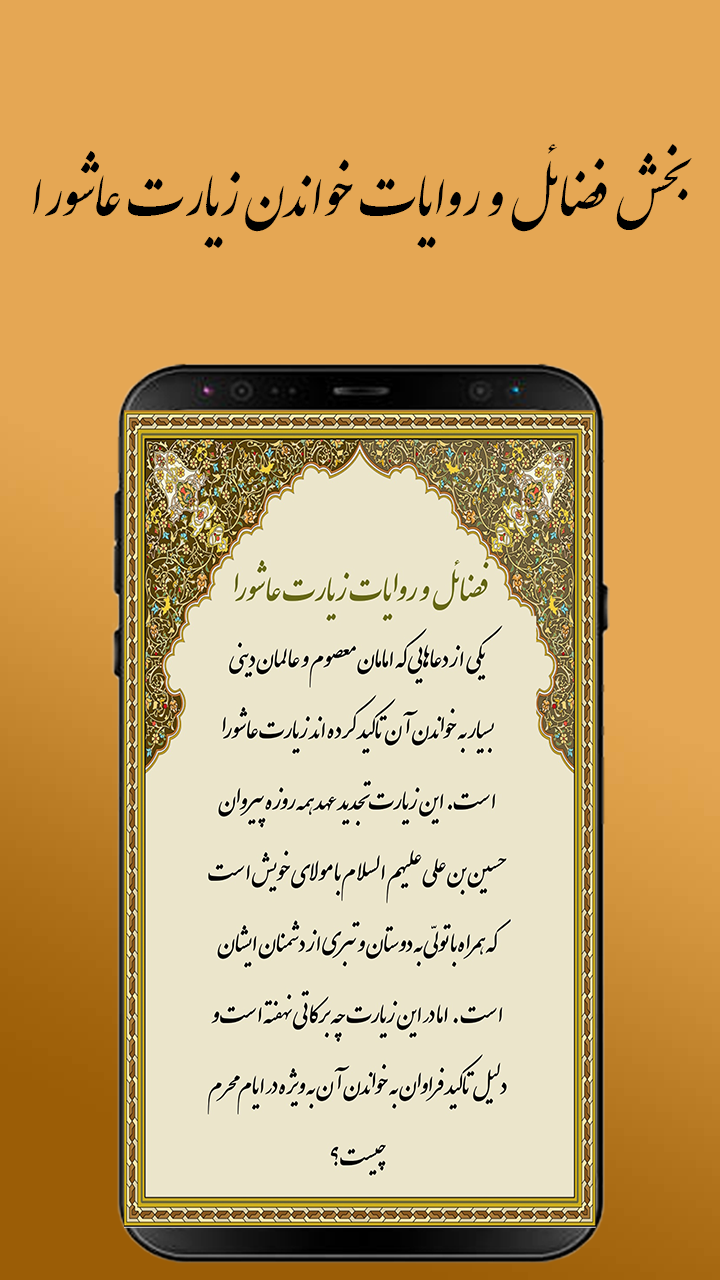 بخش فضائل و روایات خواندن زیارت عاشورا
فضائل و روایات زیارت عاشورا
یکی از دعاهایی که امامان معصوم و عالمان دینی
بسیار به خواندن آن تاکید کرده اند زیارت عاشورا
است. این زیارت تجدید عهد همه روزه پیروان
حسین بن علی علیهم السلام با مولای خویش است
که همراه با تولّی به دوستان و تبری از دشمنان ایشان
است. اما در این زیارت چه برکاتی نهفته است و
دلیل تاکید فراوان به خواندن آن به ویژه در ایام محرم
چیست؟